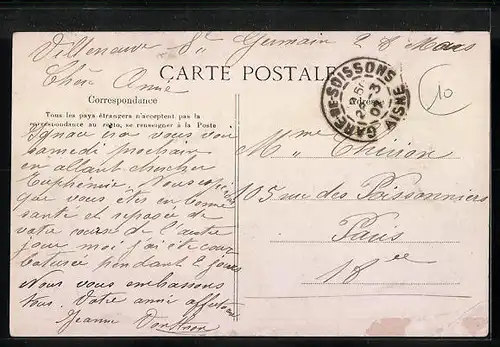 Villeneuve St Germain 28 Mars
Chère Anna
CARTE POSTALE
Correspondance
Tous les pays étrangers n'acceptent pas la
correspondance au recto, se renseigner à la Poste
Adresse
GARE DE SOISSONS
AISNE
10
Ignace ira vous voir
samedi prochain
en allant chercher
Euphémie
que vous êtes en bonne
santé et reposée de
votre course de l'autre
jour moi j'ai été cour
baturée pendant 2 jours
Nous vous embrassons
tous. Votre amie
Jeanne
Mme
105 rue des Poissonniers
Paris
18ee